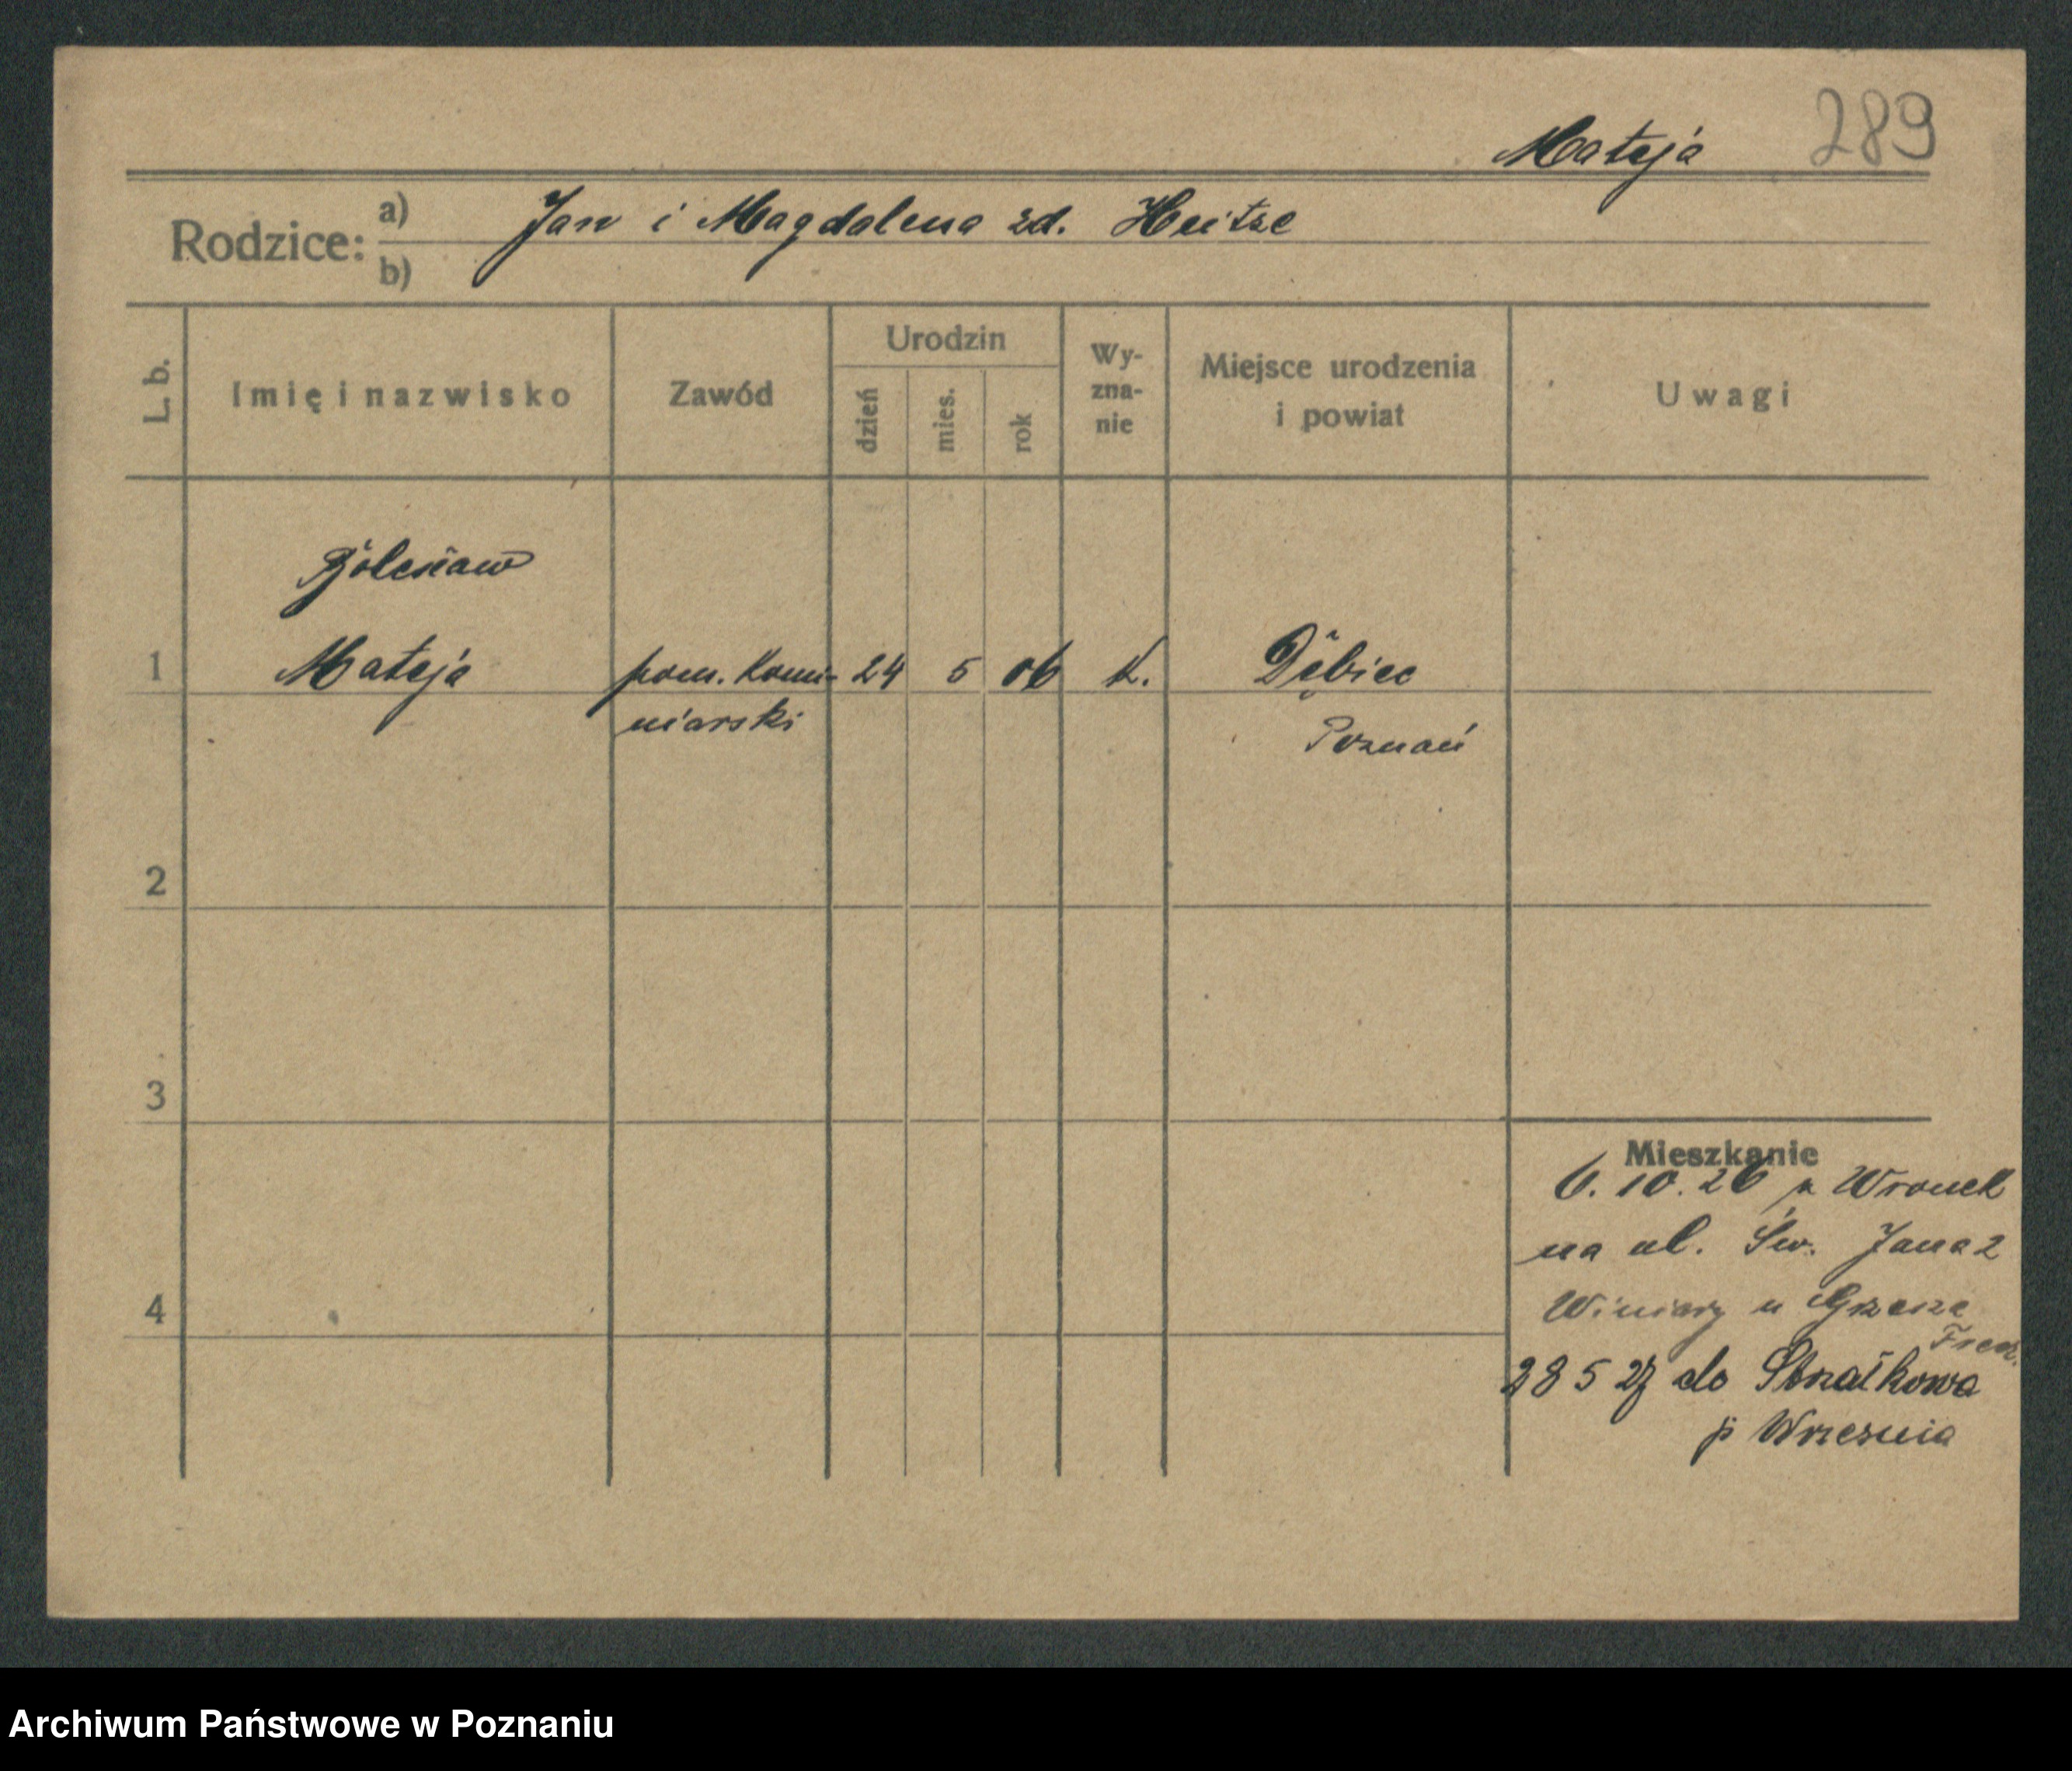 Mateja 289
Rodzice: a) Jan i Magdalena zd. Heitze
b)
L. b. Imię i nazwisko Zawód Urodzin dzień mies. rok Wy-zna-nie Miejsce urodzenia i powiat Uwagi
Bolesław
1 Mateja pom. Komi- 24 5 06 k. Dębiec
niarski Poznań
2
3
Mieszkanie
6.10.26 z Wronek
na ul. Św. Jana 2
4 Winiary u
28 5 27 do Strzałkowa
p Wrzesnia
Archiwum Państwowe w Poznaniu